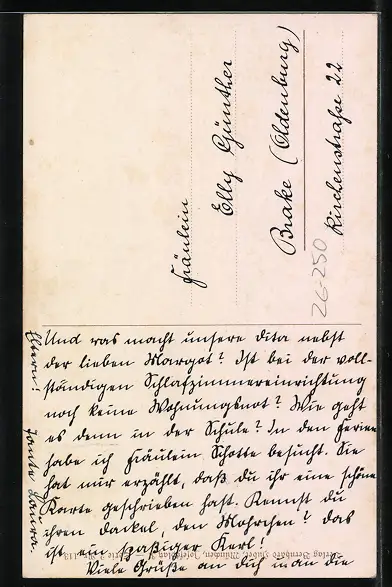 Fräulein
Elly Günther
Brake (Oldenburg)
Kirchenstraße 22
26-250
Und was macht unsere Dita nebst
der lieben Margot? Ist bei der voll-
ständigen Schlafzimmereinrichtung
noch keine Wohnungsnot? Wie geht
es denn in der Schule? In den Ferien
habe ich Fräulein Schotte besucht. Sie
hat mir erzählt, daß du ihr eine schöne
Karte geschrieben hast. Kennst du
ihren Dackel, den Mohrchen? Das
ist ein spaßiger Kerl!
Viele Grüße an dich und die
Eltern! Tante Laura.